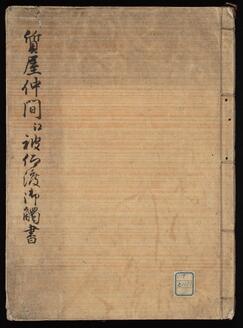 質屋仲間江被仰渡御觸書